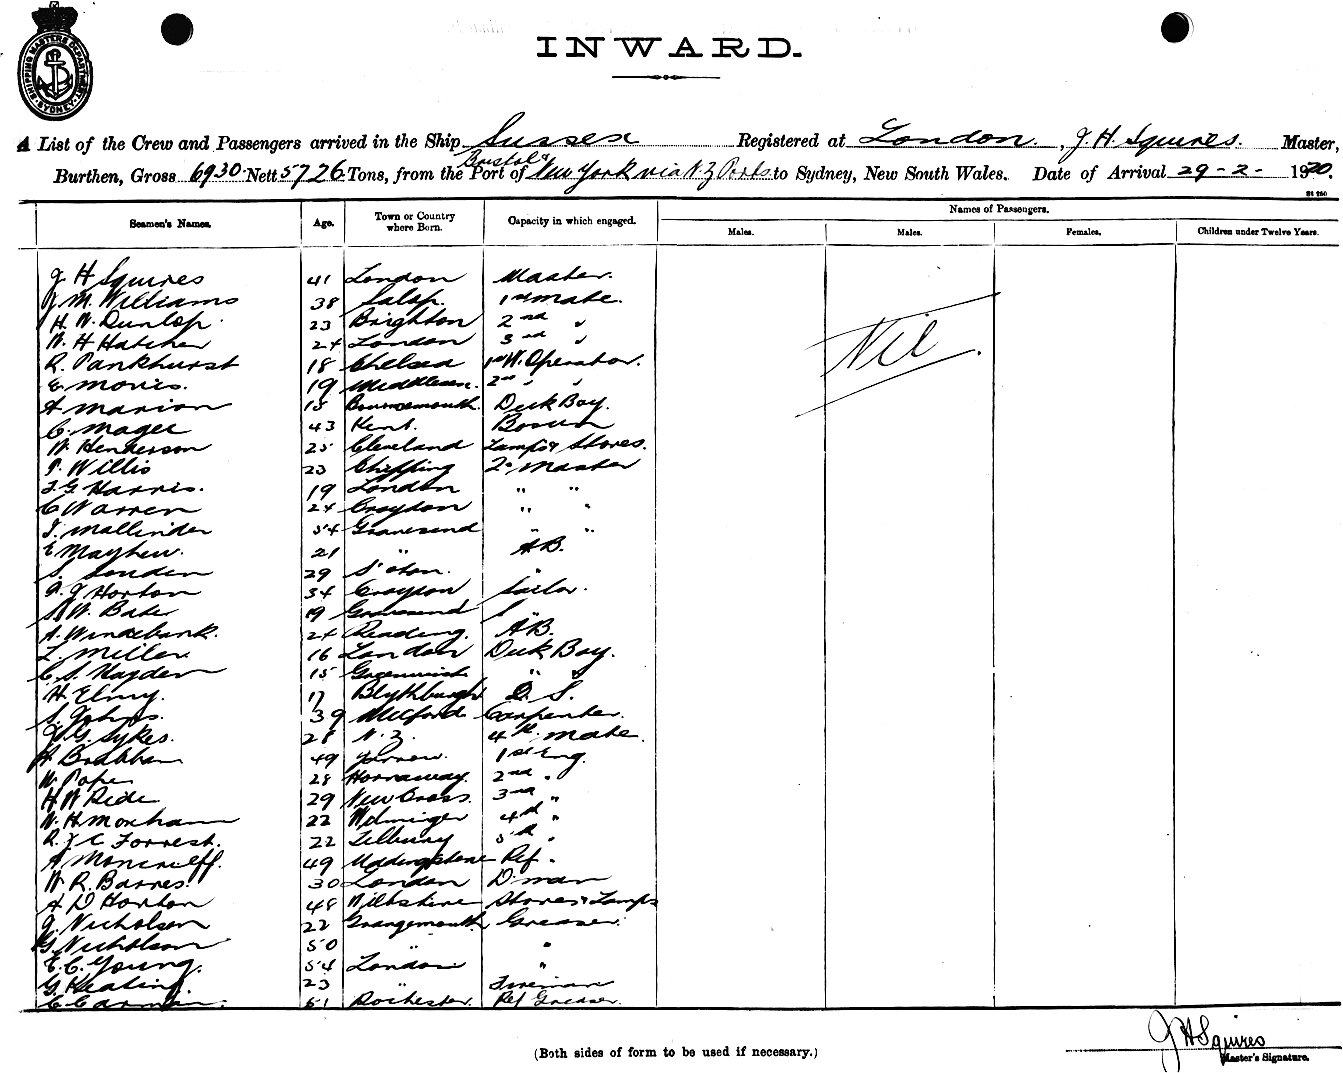 SHIPPING MASTERS DEPARTMENT SYDNEY
INWARD.
A List of the Crew and Passengers arrived in the Ship Sussex Registered at London, J. H. Squires. Master,
Bristol &
Burthen, Gross 6930 Nett 5726 Tons, from the Port of New York via N.Z Ports to Sydney, New South Wales. Date of Arrival 29-2-1920.
Seamen's Names. Age. Town or Country where Born. Capacity in which engaged. Names of Passengers.
Males. Males. Females. Children under Twelve Years.
J H Squires 41 London Master.
M. Williams 38 Salop. 1st mate.
H. W. Dunlop. 23 Brighton 2nd "
W. H Hatcher 24 London 3rd "
Nil.
R. Pankhurst 18 Chelsea 1st W. Operator.
E. 19 Middlesex. 2nd " "
A Marion 15 Bournemouth. Deck Boy.
C. Magee 43 Kent. Bosun
W. Henderson 25 Cleveland Lamps & Stores.
P. Willis 23 Chipping Qr Master
J. G Harris. 19 London " "
C Warren 24 Croydon " "
T. Mallinder 54 Gravesend " "
E Mayhew. 21 " A B.
S. 29 S'oton. "
A. J Horton 34 Croydon Sailor.
W. Baker 19 Gravesend "
A. Windebank. 24 Reading. A B.
L. Miller 16 London Deck Boy.
C. S. Hayden 15 Greenwich " "
H. Elmy. 17 Blythburgh O. S.
S. Johns. 39 Milford Carpenter.
G. Sykes. 28 N. Z. 4th mate.
A Brabham 49 1st Eng.
W. Pope 28 2nd "
H W Ride 29 New Cross. 3rd "
W. H Moxham 22 4th "
R. J C Forrest. 22 Tilbury 5th "
A Moncrieff. 49 Ref.
W R. Barnes. 30 London D. man
A D Horton 48 Wiltshire Stores & Lamps
J. Nicholson 22 Grangemouth Greaser.
G. Nicholson 50 " "
E. C. Young. 54 London "
G. Keating. 23 " Fireman
C Carman. 51 Rochester. Ref Greaser.
(Both sides of form to be used if necessary.)
J H Squires
Master's Signature.